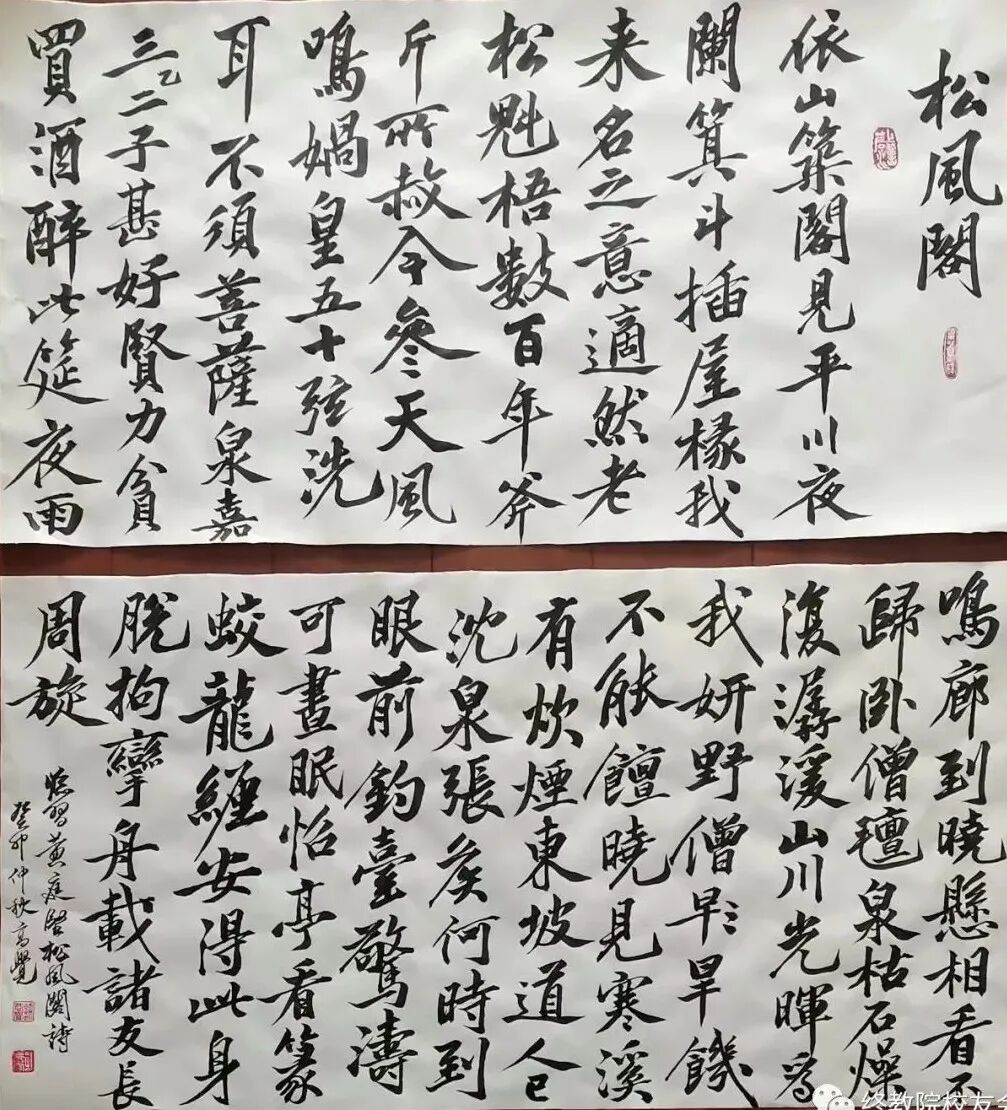 松風閣
依山築閣見平川夜
闌箕斗插屋椽我
来名之意適然老
松魁梧數百年斧
斤所赦今參天風
鳴媧皇五十弦洗
耳不須菩薩泉嘉
三乙二子甚好賢力貧
買酒醉此筵夜雨
鳴廊到曉懸相看不
歸卧僧氈泉枯石燥
復潺湲山川光暉為
我妍野僧早〻旱饑
不能饘曉見寒溪
有炊煙東坡道人已
沈泉張侯何時到
眼前釣臺驚濤
可晝眠怡亭看篆
蛟龍纏安得此身
脫拘攣舟載諸友長
周旋
臨習黄庭堅松風閣詩
癸卯仲秋高覺
终教院校友